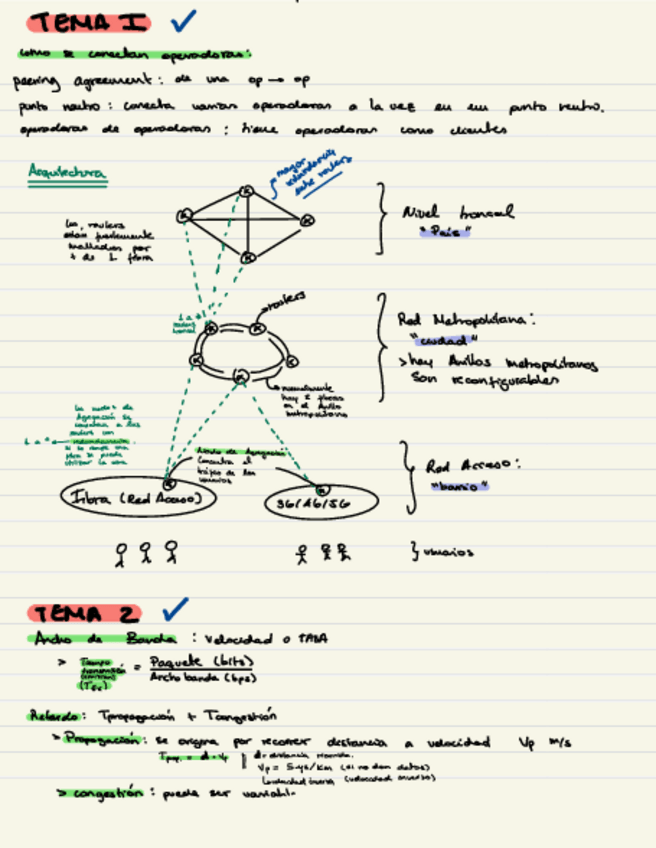 TEMA I
como se conectan operadoras:
peering agreement: de una op → op
punto neutro: conecta varias operadoras a la vez en un punto neutro.
operadoras de operadoras: tiene operadoras como clientes
Arquitectura
mayor redundancia entre routers
Los routers
están parcialmente
mallados por
+ de 1 fibra
Nivel troncal
"País"
routers
Red Metropolitana:
"ciudad"
> hay Anillos Metropolitanos
Son reconfigurables
normalmente
hay 2 fibras
en el Anillo
Metropolitano
Los nodos de
Agregación se
conectan a los
routers con
redundancia.
Si se rompe una
fibra se puede
utilizar la otra
Nodo de Agregación
Concentra el
tráfico de los
usuarios
Red Acceso:
"barrio"
Fibra (Red Acceso)
3G/4G/5G
} usuarios
TEMA 2
Ancho de Banda: velocidad o TASA
> Tiempo transmisión = Paquete (bits)
Ancho banda (bps)
Retardo: Tpropagación + Tcongestión
> Propagación: se origina por recorrer distancia a velocidad Vp m/s
Tprop. = d · Vp
d = distancia recorrida.
Vp = 5 μs/km (si no dan datos)
(velocidad inversa)
> congestión: puede ser variable